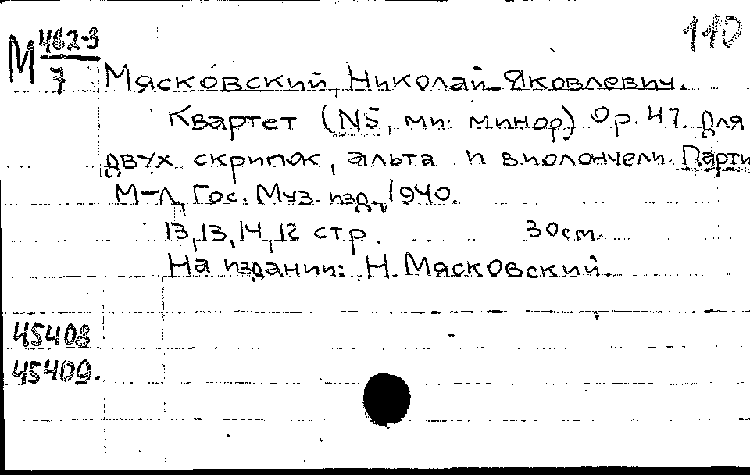 110
М 462-3/7
Мясковский, Николай Яковлевич.
Квартет (№5, ми минор) Op. 47. Для
двух скрипок, альта и виолончели. Парти
М-Л, Гос. Муз. изд., 1940.
13, 13, 14, 12 стр. 30 см.
На издании: Н. Мясковский.
45408
45409.